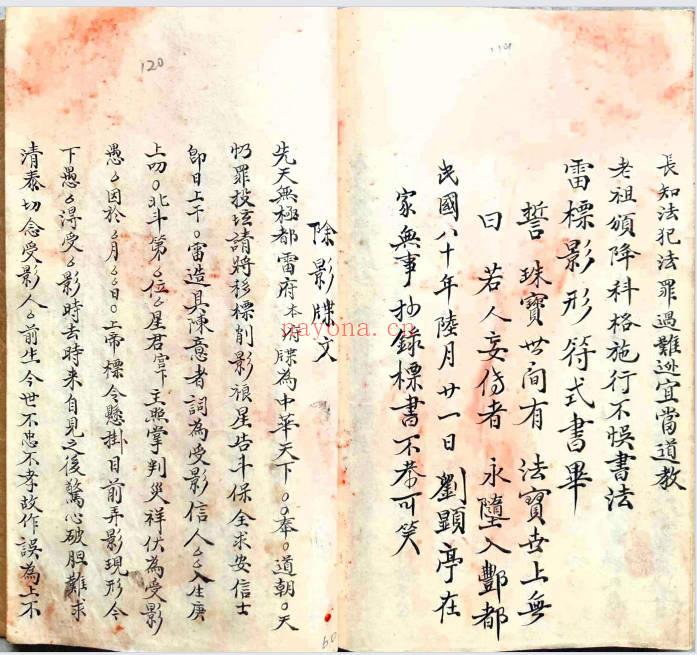 119
長知法犯法罪過難逃宜當道教
老祖頒降科格施行不悞書法
雷標影形符式書畢
誓珠寶世间有法寶世上無
曰若人妄傳者永墮入酆都
民國八十年陸月廿一日劉顕亭在
家無事抄錄標書不恭可笑
120
除影牒文
先天無極都雷府本府牒為中華天下〇〇奉〇道朝〇天
礽罪投坛請将移標削影禳星告斗保全求安信士
卽日上干〇雷造具陳意者詞為受影信人么么入生庚
上叩〇北斗第么位么星君寧主照掌判災祥伏為受影
愚么因於么月么么日〇上帝標令懸掛目前弄影現形今
下愚么得受么影時去時来自見之後驚心破胆難求
清泰切念受影人么前生今世不忠不孝故作誤為上不
60
nayona.cn